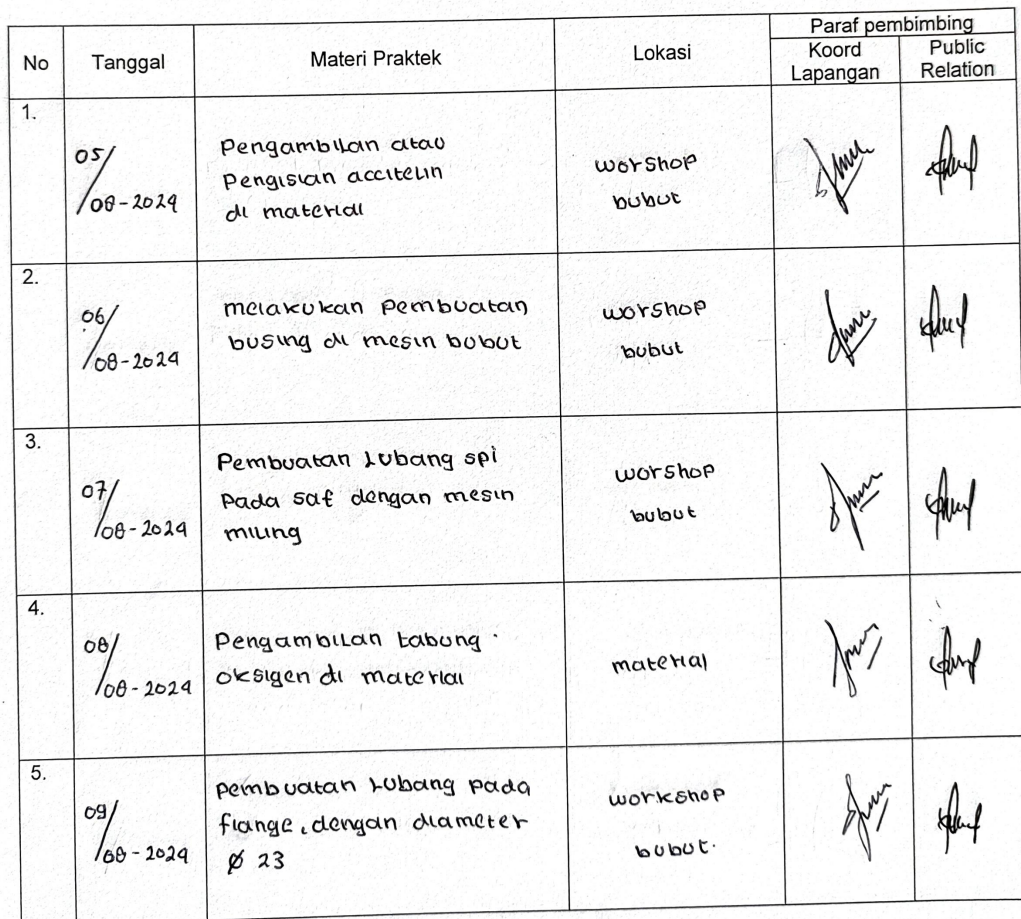 No Tanggal Materi Praktek Lokasi Paraf pembimbing
Koord Lapangan Public Relation
1.
05/08-2024
Pengambilan atau
Pengisian accitelin
di material
worshop
bubut
2.
06/08-2024
melakukan Pembuatan
busing di mesin bubut
worshop
bubut
3.
07/08-2024
Pembuatan Lubang spi
Pada saf dengan mesin
miling
worshop
bubut
4.
08/08-2024
Pengambilan tabung
oksigen di material
material
5.
09/08-2024
pembuatan Lubang pada
flange, dengan diameter
Ø 23
workshop
bubut.